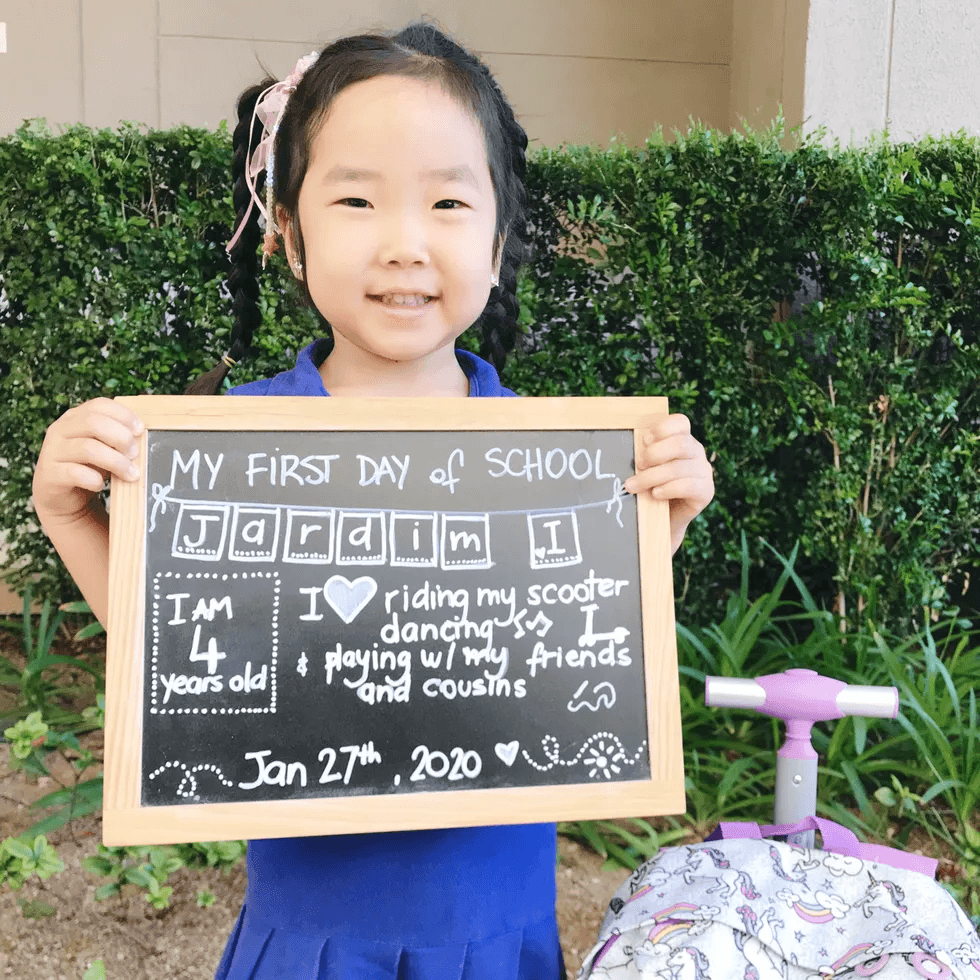 MY FIRST DAY of SCHOOL
Jardim I
I AM
4
years old
I riding my scooter
dancing
& playing w/ my friends
and cousins
Jan 27th, 2020